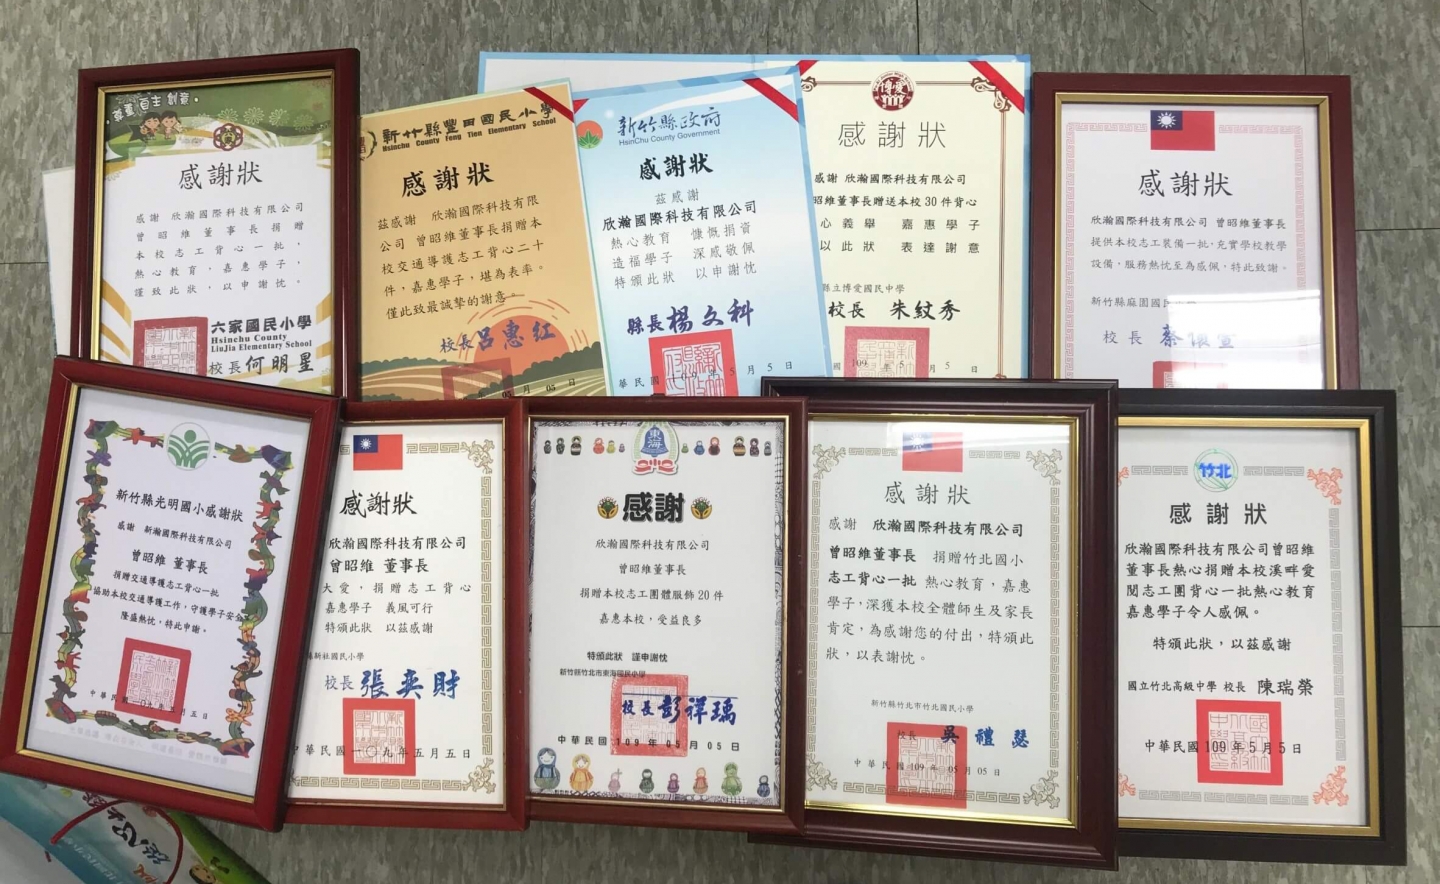 尊重 自主 創意
感謝狀
感謝 欣瀚國際科技有限公司
曾昭維董事長捐贈
本校志工背心一批，
熱心教育，嘉惠學子，
謹致此狀，以申謝忱。
六家國民小學
Hsinchu County
LiuJia Elementary School
校長 何明星
新竹縣豐田國民小學
Hsinchu County Feng Tien Elementary School
感謝狀
茲感謝 欣瀚國際科技有限
公司 曾昭維董事長捐贈本
校交通導護志工背心二十
件，嘉惠學子，堪為表率。
僅此致最誠摯的謝意。
校長 呂惠紅
月 05 日
新竹縣政府
HsinChu County Government
感謝狀
茲感謝
欣瀚國際科技有限公司
熱心教育 慷慨捐資
造福學子 深感敬佩
特頒此狀 以申謝忱
縣長 楊文科
華民國 109 年 5 月 5 日
博愛
感謝狀
感謝 欣瀚國際科技有限公司
昭維董事長贈送本校30件背心
心義舉 嘉惠學子
以此狀 表達謝意
縣立博愛國民中學
校長 朱紋秀
國 109 年 5 月 5 日
感謝狀
欣瀚國際科技有限公司 曾昭維董事長
提供本校志工裝備一批，充實學校教學
設備，服務熱忱至為感佩，特此致謝。
新竹縣麻園國民
校長 蔡
新竹縣光明國小感謝狀
感謝 新瀚國際科技有限公司
曾昭維 董事長
捐贈交通導護志工背心一批
協助本校交通導護工作，守護學子安全
隆盛熱忱，特此申謝。
中華民國一0九年五月五日
感謝狀
欣瀚國際科技有限公司
曾昭維 董事長
大愛，捐贈志工背心
嘉惠學子 義風可行
特頒此狀 以茲感謝
縣新社國民小學
校長 張奕財
中華民國一〇九年五月五日
東海
感謝
欣瀚國際科技有限公司
曾昭維董事長
捐贈本校志工團體服飾20件
嘉惠本校，受益良多
特頒此狀 謹申謝忱
新竹縣竹北市東海國民小學
校長 彭祥瑀
中華民國 109 年 05 月 05 日
感謝狀
感謝 欣瀚國際科技有限公司
曾昭維董事長 捐贈竹北國小
志工背心一批 熱心教育，嘉惠
學子，深獲本校全體師生及家長
肯定，為感謝您的付出，特頒此
狀，以表謝忱。
新竹縣竹北市竹北國民小學
校長 吳禮瑟
中華民國 109 年 05 月 05 日
竹北
感謝狀
欣瀚國際科技有限公司曾昭維
董事長熱心捐贈本校溪畔愛
閱志工團背心一批熱心教育
嘉惠學子令人感佩。
特頒此狀，以茲感謝
國立竹北高級中學 校長 陳瑞榮
中華民國 109 年 5 月 5 日